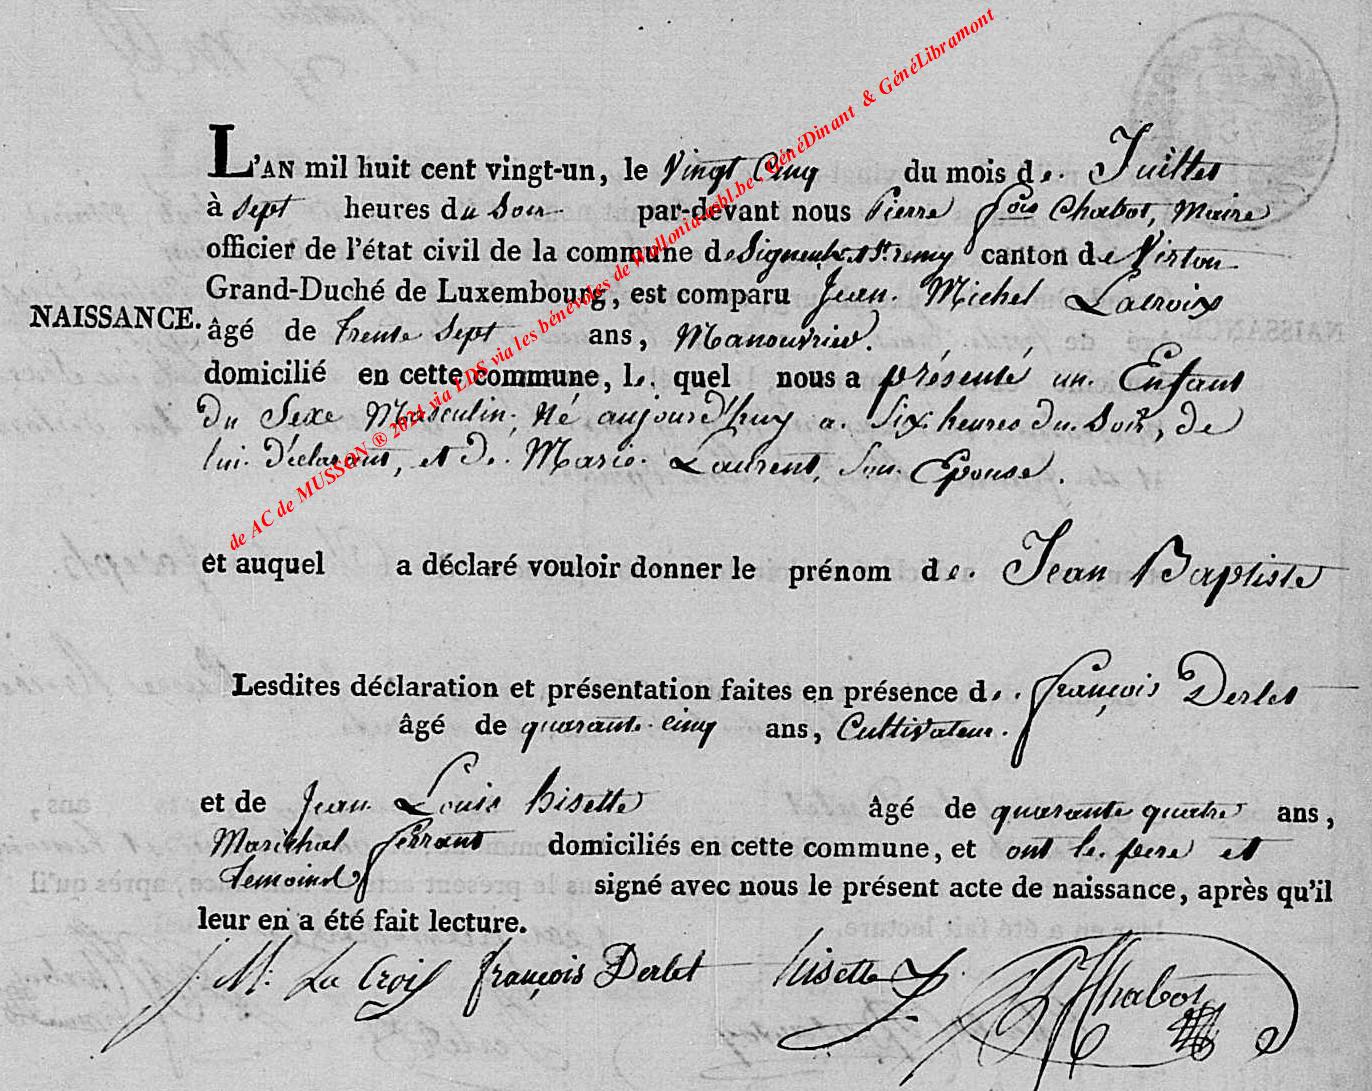 L'AN mil huit cent vingt-un, le Vingt Cinq du mois de Juillet
à Sept heures du Soir par-devant nous Pierre fçois Chabot, Maire
officier de l'état civil de la commune de Signeulx & St remy canton de Virton
Grand-Duché de Luxembourg, est comparu Jean Michel Lacroix
NAISSANCE. âgé de trente Sept ans, Manouvrier.
domicilié en cette commune, le quel nous a présenté un Enfant
du Sexe Masculin, Né aujourd'huy a Six heures du Soir, de
lui déclarant, et de Marie Laurent, Son Epouse.
et auquel a déclaré vouloir donner le prénom de Jean Baptiste
Lesdites déclaration et présentation faites en présence de françois Derlet
âgé de quarante cinq ans, Cultivateur.
et de Jean Louis hisette âgé de quarante quatre ans,
Maréchal ferrant domiciliés en cette commune, et ont le pere et
temoins signé avec nous le présent acte de naissance, après qu'il
leur en a été fait lecture.
J. M. La Croix françois Derlet hisette J. Chabot
de AC de MUSSON ® 2024 via EDS via les bénévoles de Wallonia asbl.be : GénéDinant & GénéLibramont